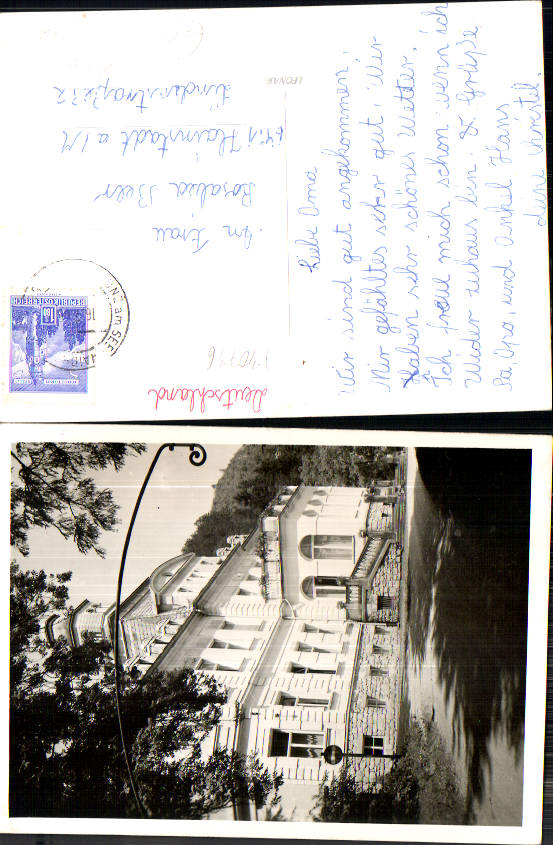 Liebe Oma
Wir sind gut angekommen.
Mir gefählt es sehr gut. Wir
haben sehr schönes Wetter.
Ich freue mich schon wenn ich
Wieder zuhaus bin. Grüße
Pa, Opa, und Onkel Hans
deine Christl
LEONAR
An Frau
Rosalia Beer
6451 Hainstadt a/M
Lindenstraße 32
REPUBLIK ÖSTERREICH
am SEE
Deutschland